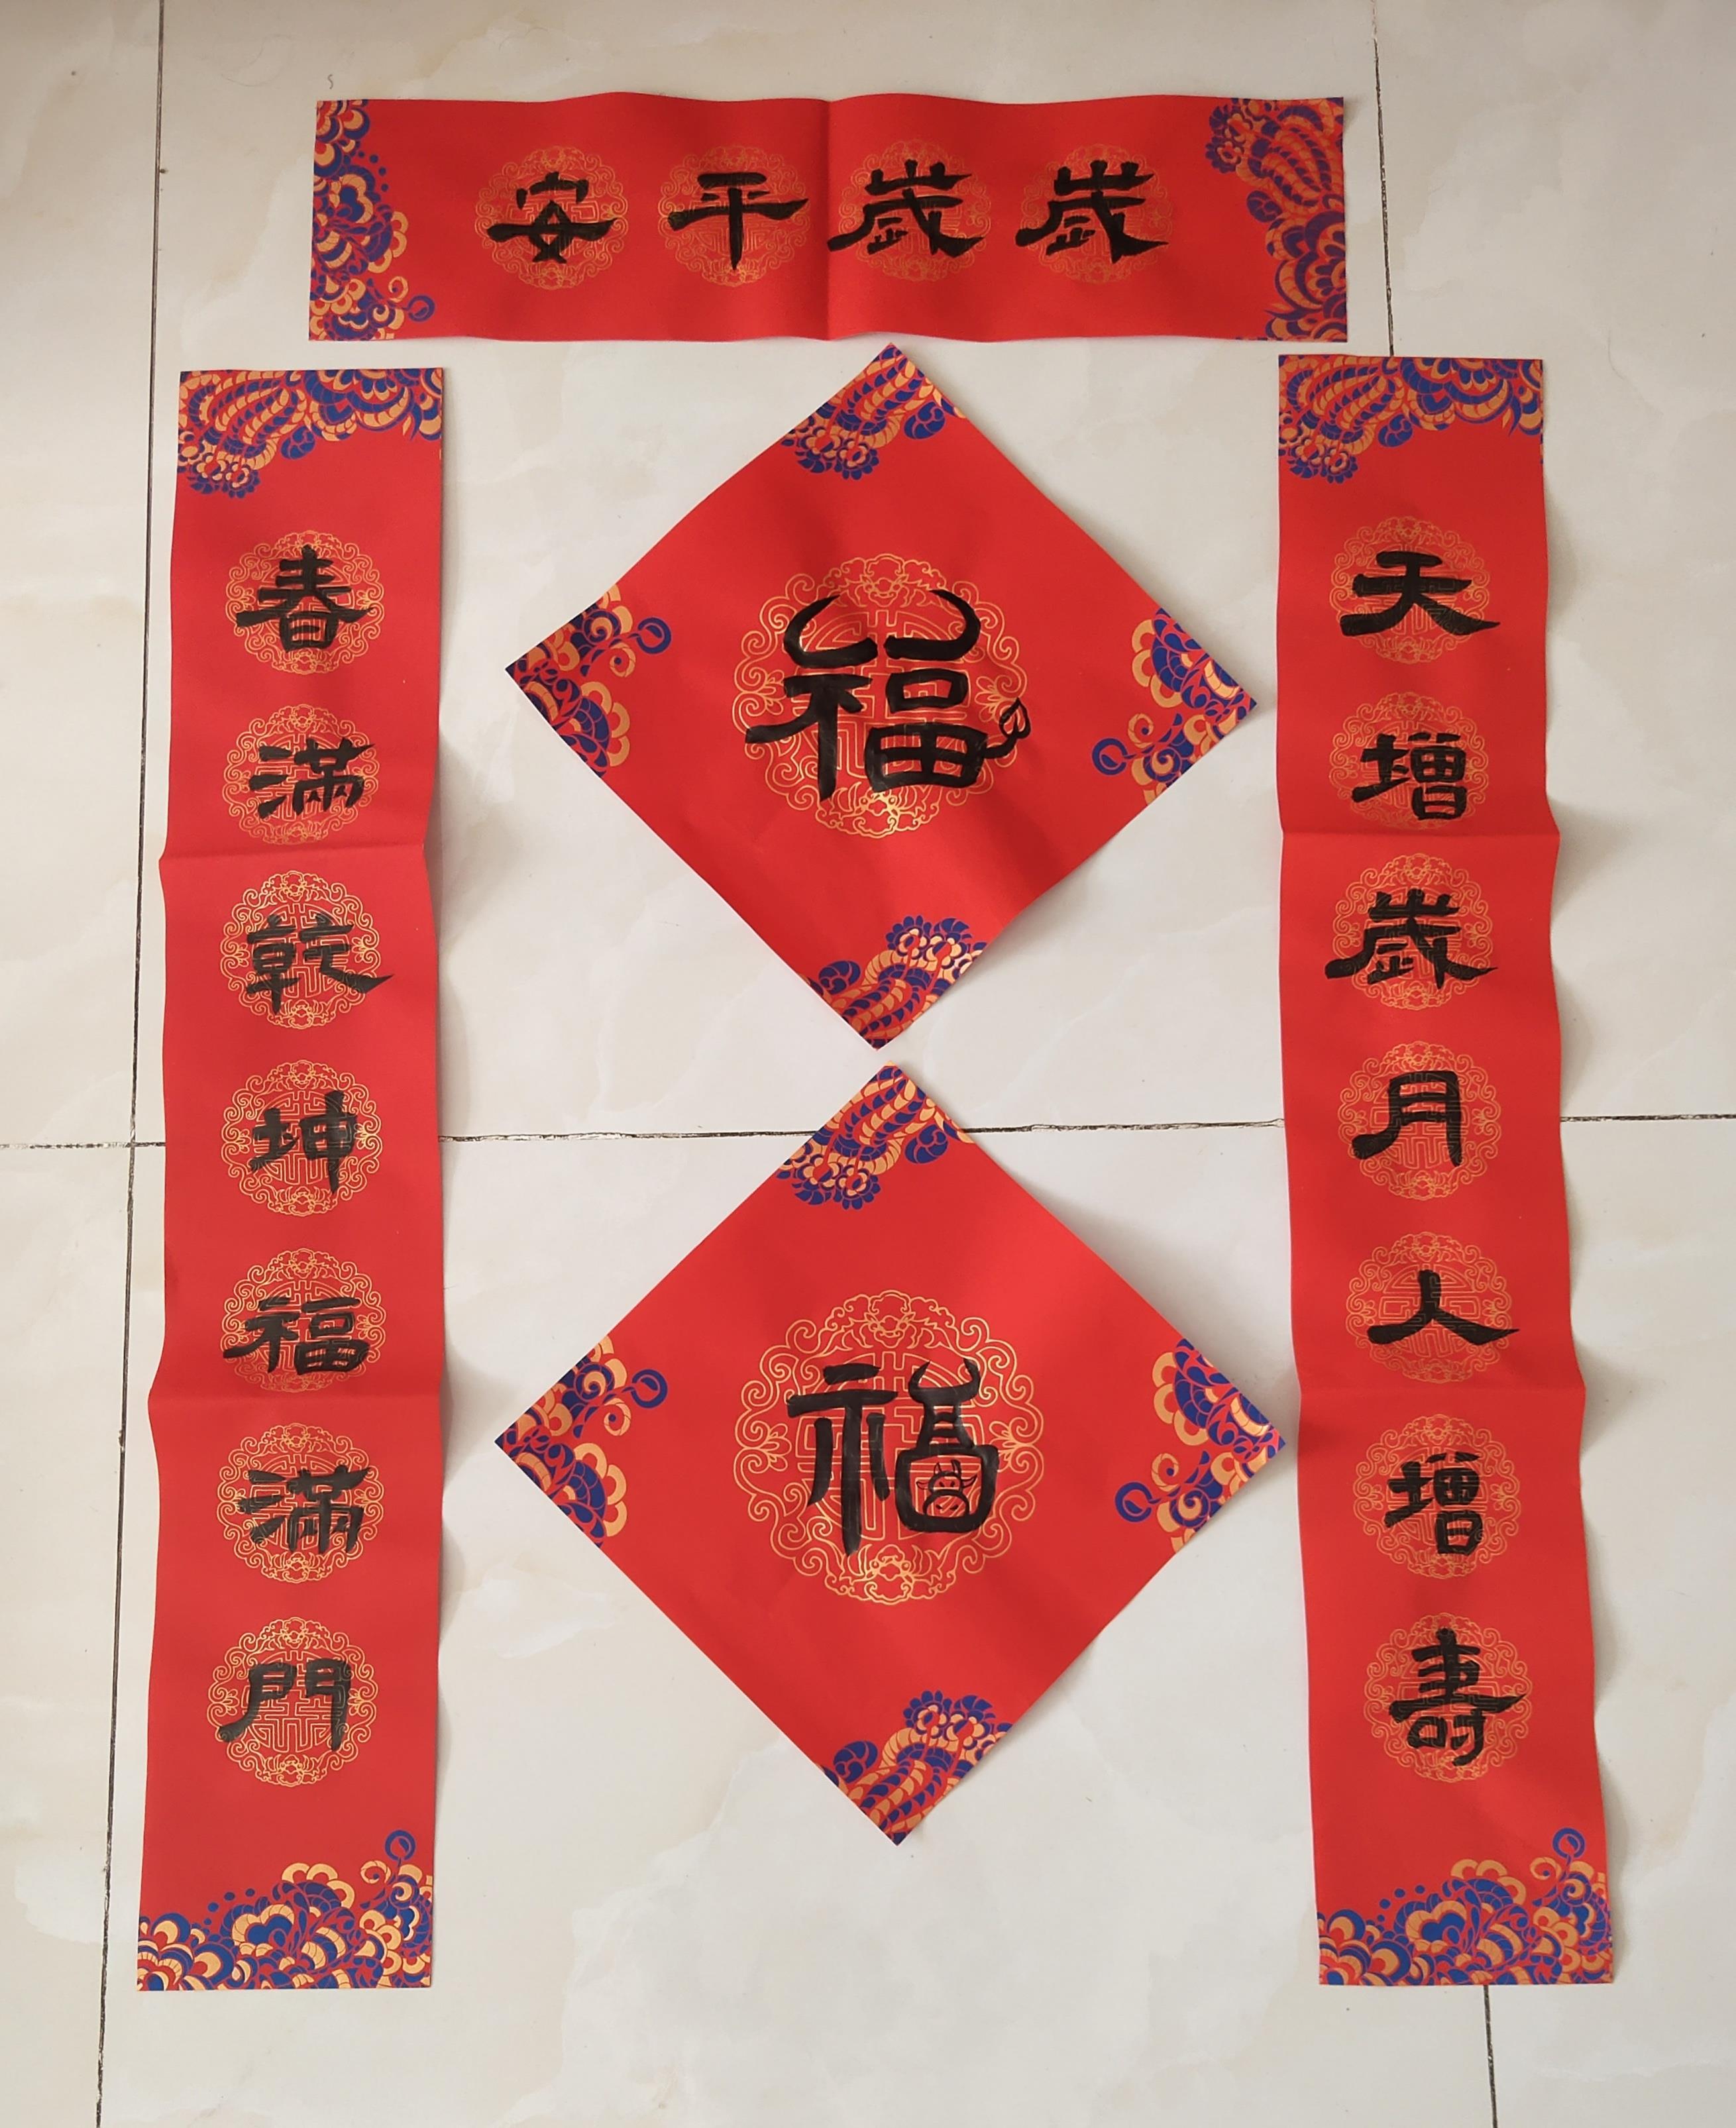 歲歲平安
天增歲月人增壽
春滿乾坤福滿門
福
福